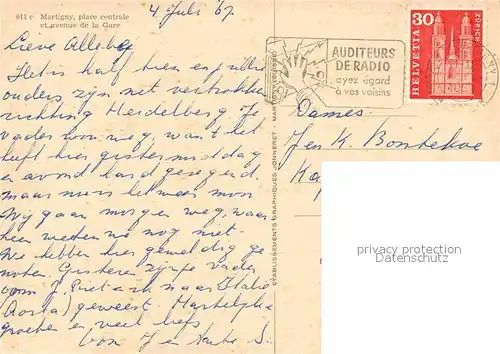 911 e Martigny, place centrale
et avenue de la Gare
4 Juli '67.
Lieve Allebei
Het is half tien en jullie
ouders zijn net vertrokken
richting Heidelberg. Je
vader voorweg, want het
heeft hier gistermiddag
en avond hard geregend
maar nu is het weer mooi
Wij gaan morgen weg, waar
heen weten we nog niet.
We hebben hier geweldig ge
noten. Gisteren zijn vader
naar Italië
(Aosta) geweest Hartelijke
groeten en veel liefs
van J en
ETABLISSEMENTS GRAPHIQUES JONNERET MARTIGNY
AUDITEURS
DE RADIO
ayez égard
à vos voisins
30
HELVETIA
ZÜRICH
Dames
J en K. Bontekoe
privacy protection
DatenSchutz